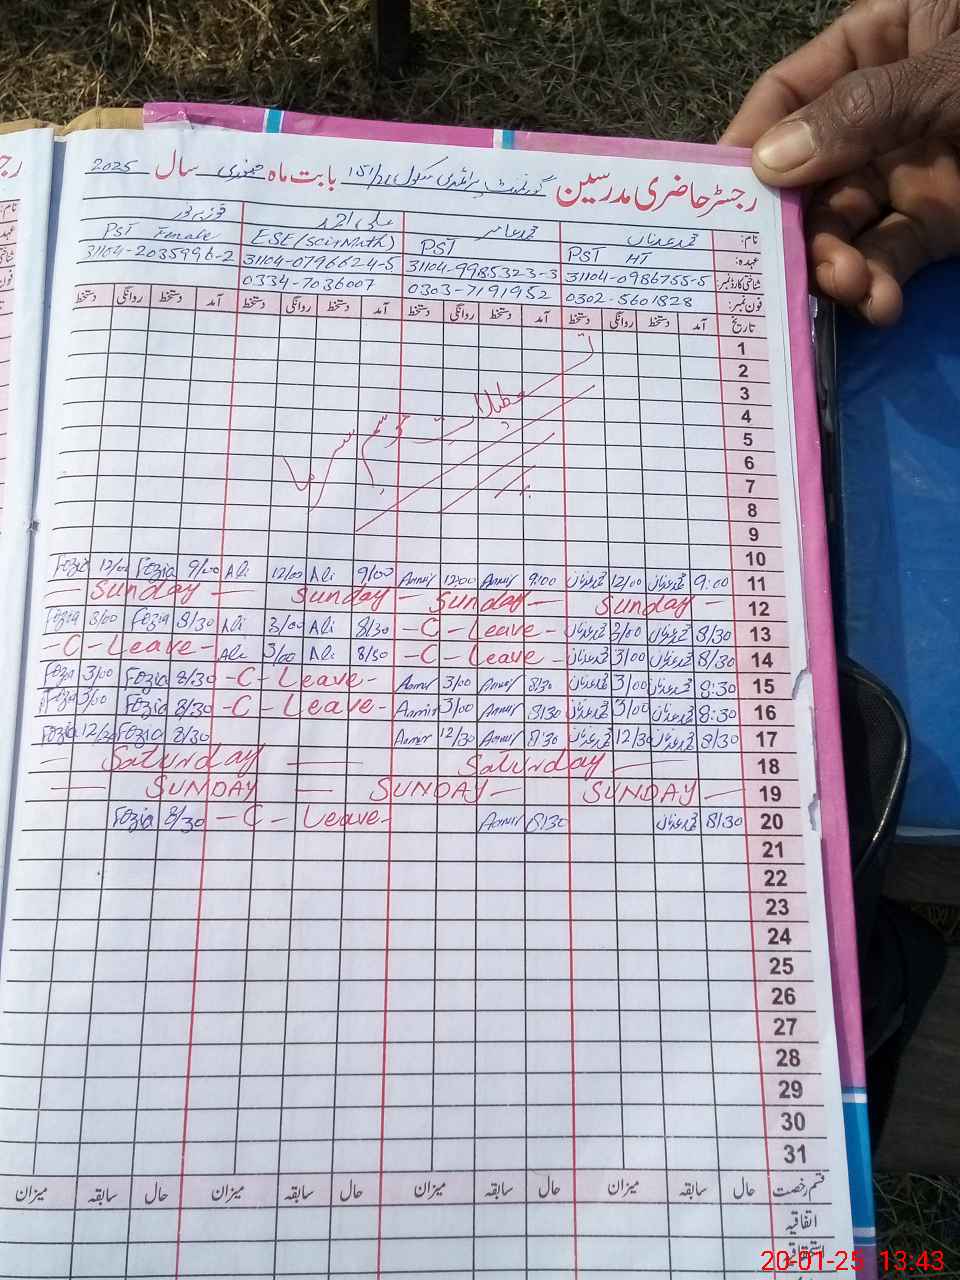 رجسٹر حاضری مدرسین گورنمنٹ پرائمری سکول بابت ماہ جنوری سال 2025
نام: محمد عدنان محمد عامر علی احمد فوزیہ نور
عہدہ: PST HT PST ESE (Sci+Math) PST Female
شناختی کارڈ نمبر: 31104-0986755-5 31104-9985323-3 31104-0796624-5 31104-2035996-2
فون نمبر: 0302-5601828 0303-7191952 0334-7036007
تاریخ آمد دستخط روانگی دستخط آمد دستخط روانگی دستخط آمد دستخط روانگی دستخط آمد دستخط روانگی دستخط
1
2
3
4
5
6
7
8
9
تعطیلات موسم سرما
10
11 9:00 محمد عدنان 12/00 محمد عدنان 9:00 Aamir 12:00 Aamir 9/00 Ali 12/00 Ali 9/00 Fozia 12/00 Fozia
12 Sunday Sunday Sunday Sunday
13 8/30 محمد عدنان 3/00 محمد عدنان C - Leave 8/30 Ali 3/00 Ali 8/30 Fozia 3/00 Fozia
14 8/30 محمد عدنان 3/00 محمد عدنان C - Leave 8/30 Ali 3/00 Ali C - Leave
15 8:30 محمد عدنان 3/00 محمد عدنان 8/30 Aamir 3/00 Aamir C - Leave 8/30 Fozia 3/00 Fozia
16 8:30 محمد عدنان 3/00 محمد عدنان 8/30 Aamir 3/00 Aamir C - Leave 8/30 Fozia 3/00 Fozia
17 8/30 محمد عدنان 12/30 محمد عدنان 8/30 Aamir 12/30 Aamir 8/30 Fozia 12/30 Fozia
18 Saturday Saturday
19 SUNDAY SUNDAY SUNDAY
20 8/30 محمد عدنان 8/30 Aamir C - Leave 8/30 Fozia
21
22
23
24
25
26
27
28
29
30
31
قسم رخصت حال سابقہ میزان حال سابقہ میزان حال سابقہ میزان حال سابقہ میزان
اتفاقیہ
استحقاقیہ
20-01-25 13:43